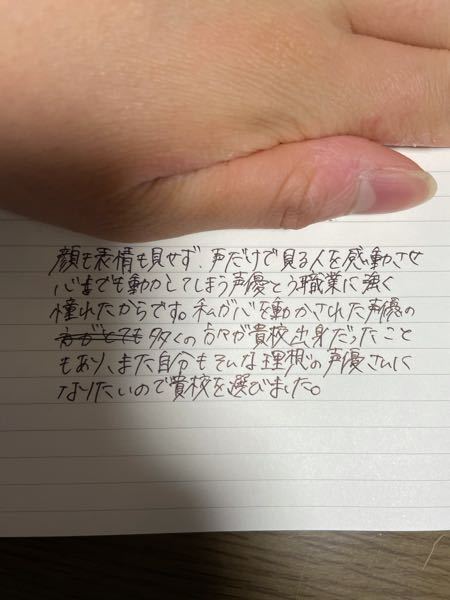 顔も表情も見せず、声だけで見る人を感動させ
心までも動かしてしまう声優とう職業に強く
憧れたからです。私が心を動かされた声優の
方がとても多くの方々が貴校出身だったこと
もあり、また自分もそんな理想の声優さんに
なりたいので貴校を選びました。